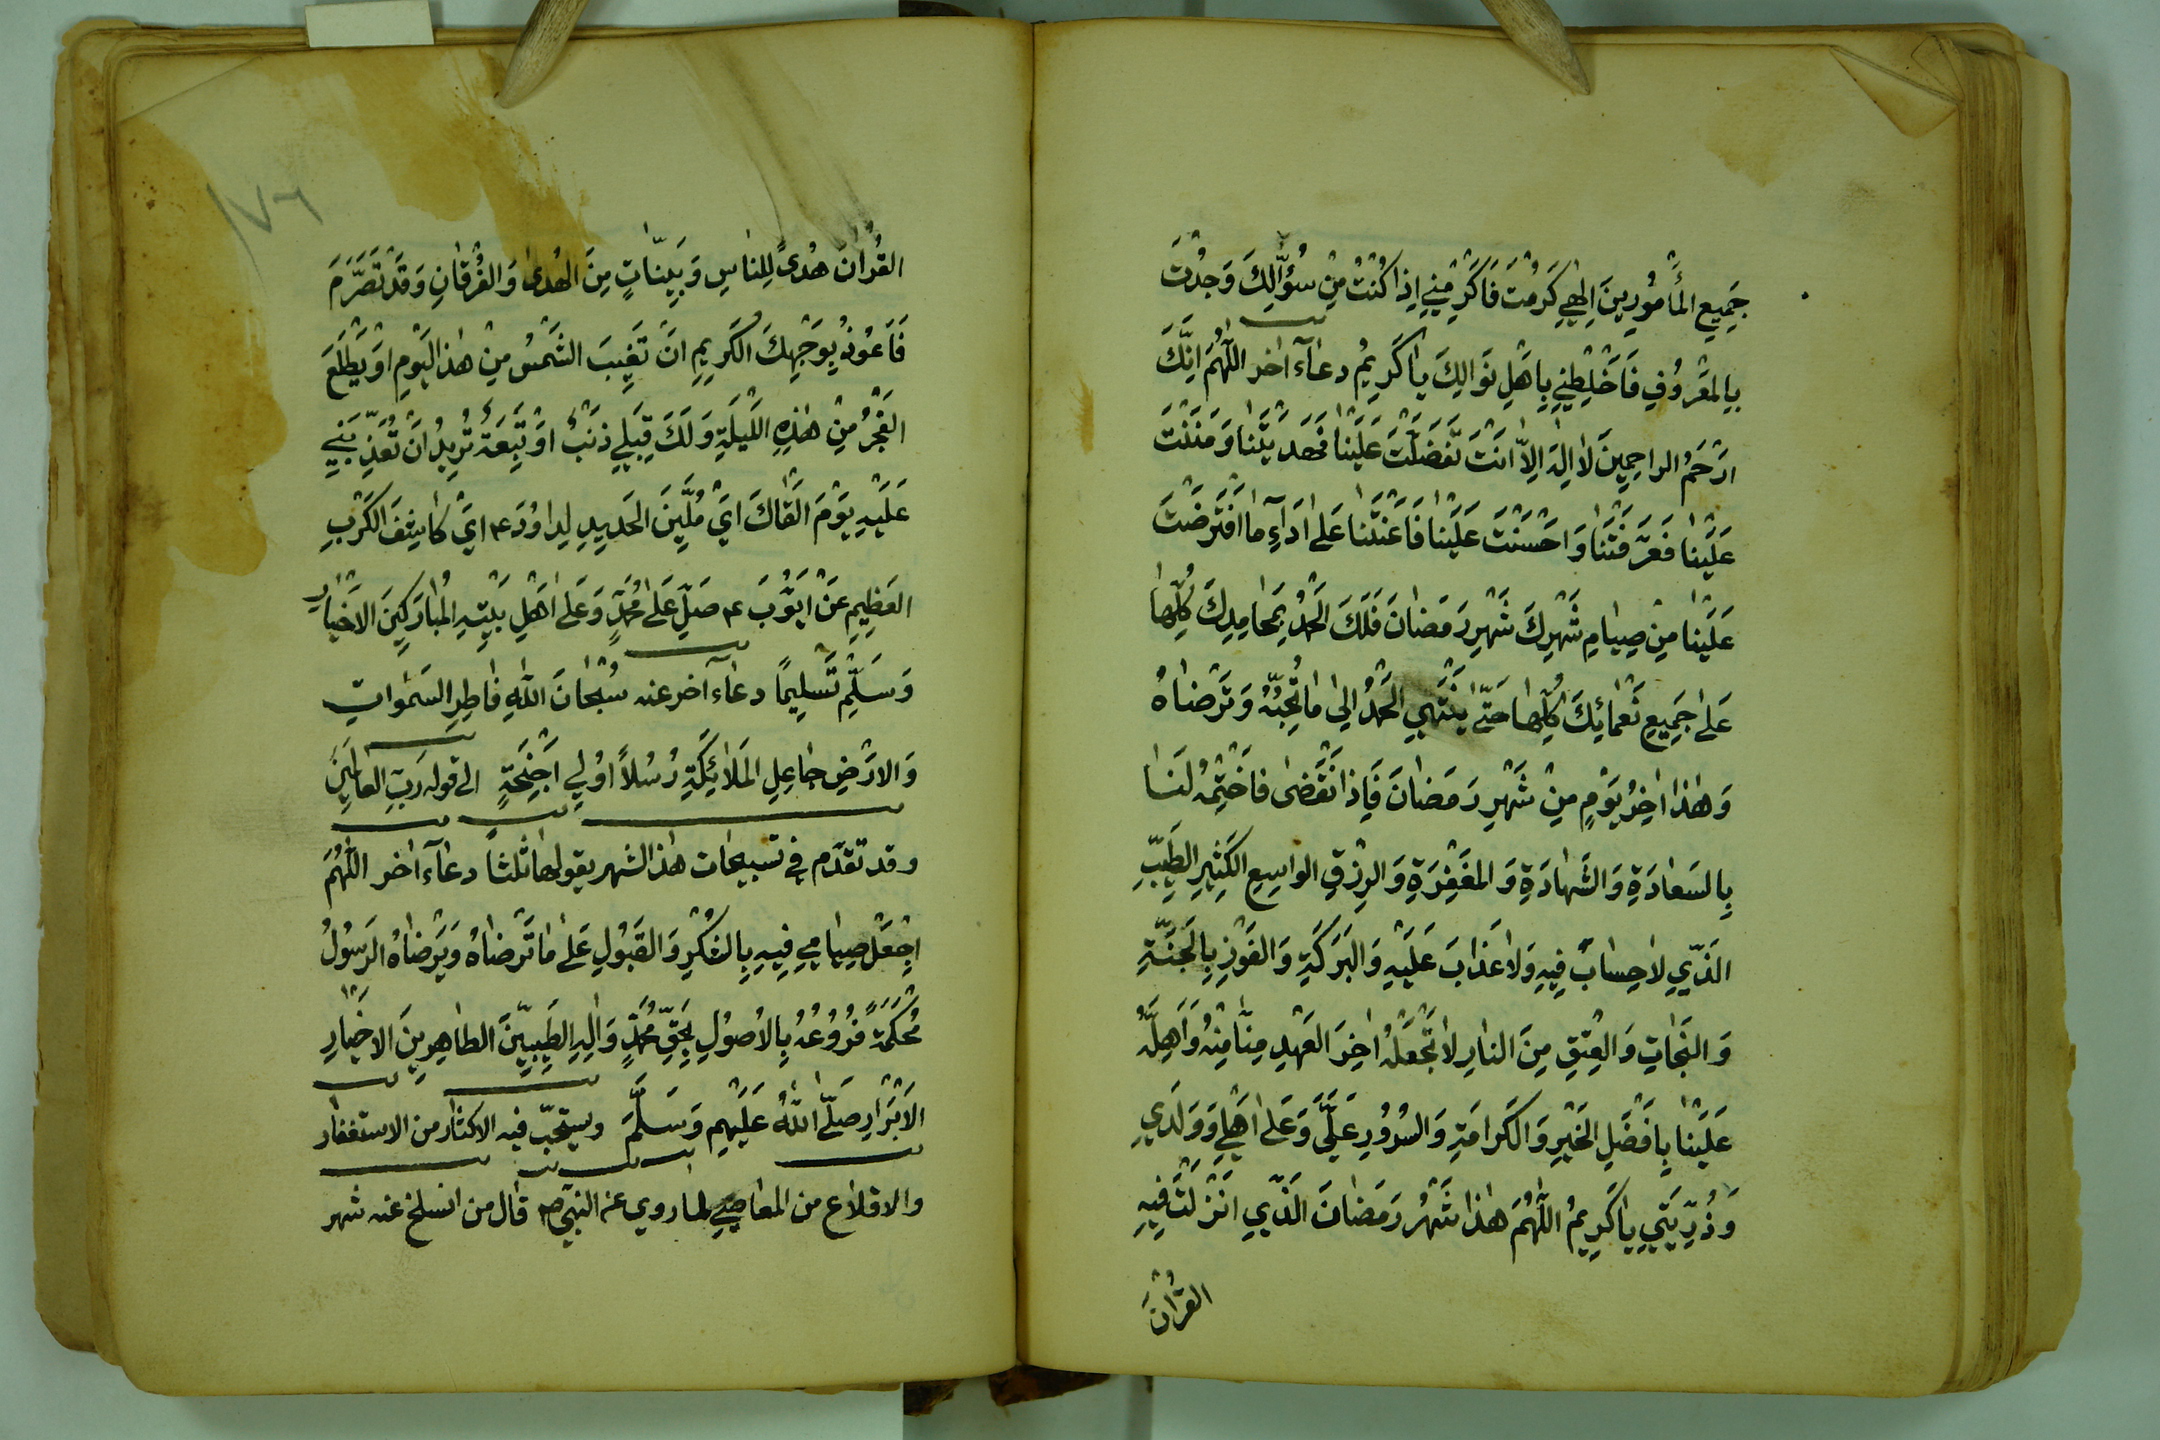 جَمِيعِ المَأْمُورِينَ اِلٰهِي كَرُمْتَ فَاَكْرِمْنِي اِذَا كُنْتُ مِنْ سُؤَّالِكَ وَجُدْتَ
بِالمَعْرُوفِ فَاَخْلِطْنِي بِاَهْلِ نَوَالِكَ يٰا كَرِيمُ دعٰآء اٰخر اللّٰهُمَّ اِنَّكَ
اَرْحَمُ الراحِمِينَ لٰا اِلٰهَ اِلّٰا اَنْتَ تَفَضَّلْتَ عَلَيْنٰا فَهَدَيْتَنٰا وَمَنَنْتَ
عَلَيْنٰا فَعَرَّفْتَنٰا وَاَحْسَنْتَ عَلَيْنٰا فَاَعَنْتَنٰا عَلٰى اَدٰاءِ مٰا افْتَرَضْتَ
عَلَيْنٰا مِنْ صِيٰامِ شَهْرِكَ شَهْرِ رَمَضٰانَ فَلَكَ الْحَمْدُ بِمَحٰامِدِكَ كُلِّهٰا
عَلٰى جَمِيعِ نَعْمٰائِكَ كُلِّهٰا حَتّٰى يَنْتَهِي الْحَمْدُ اِلىٰ مٰا تُحِبُّهُ وَتَرْضٰاهُ
وَهٰذٰا اٰخِرُ يَوْمٍ مِنْ شَهْرِ رَمَضٰانَ فَاِذَا نْقَضٰى فٰاخْتِمْهُ لَنٰا
بِالسَعٰادَةِ وَالشَهٰادَةِ وَالمَغْفِرَةِ وَالرِزْقِ الواسِعِ الكَثِيرِ الطَيِّبِ
الَذّي لٰا حِسٰابَ فِيهِ وَلٰا عَذٰابَ عَلَيْهِ وَالبَرَكَةِ وَالفَوْزِ بِالجَنَّةِ
وَالنَجٰاتِ وَالْعِتْقِ مِنَ النٰارِ لٰا تَجْعَلْهُ اٰخِرَ العَهْدِ مِنّٰا مِنْهُ وَاَهِلَّهُ
عَلَيْنٰا بِاَفْضَلِ الخَيْرِ وَالكَرٰامَةِ وَالسُرُورِ عَلَيَّ وَعَلٰى اَهْلِي وَوَلَدِي
وَذُرِّيَتِي يٰا كَرِيمُ اللّٰهُمَّ هٰذٰا شَهْرُ رَمَضٰانَ الَذّي اَنْزَلْتَ فِيهِ
القُرْاٰنَ
١٧٦
القُرْاٰنَ هُدىً لِلنٰاسِ وَبَيِّنٰاتٍ مِنَ الهُدىٰ وَالفُرْقٰانِ وَقَدْ تَصَرَّمَ
فَاَعُوذُ بِوَجْهِكَ الكَرِيمِ اَنْ تَغِيبَ الشَمْسُ مِنْ هٰذا اليَوْمِ اَوْ يَطْلَعَ
الفَجْرُ مِنْ هٰذِهِ اللَيْلَةِ وَلَكَ قِبَلِي ذَنْبٌ اَوْ تَبِعَةٌ تُرِيدُ اَنْ تُعَذِّبَنِي
عَلَيْهِ يَوْمَ اَلْقٰاكَ اَيْ مُلَيِّنَ الحَدِيدِ لِدٰاوُدَ ع اَيْ كٰاشِفَ الكَرْبِ
العَظِيمِ عَنْ اَيُّوبَ ع صَلِّ عَلٰى مُحَمَّدٍ وَعَلٰى اَهْلِ بَيْتِهِ المُبٰارَكِينَ الاَخْيٰارِ
وَسَلِّمْ تَسْلِيمًا دعٰآء آخر عنه سُبْحٰانَ اللّٰهِ فٰاطِرِ السَمٰوٰاتِ
وَالاَرْضِ جٰاعِلِ المَلٰائِكَةِ رُسُلاً اُولِي اَجْنِحَةٍ الى قوله رَبّ العالَمِينَ
وقد تقدّم في تسبيحات هذا الشهر يقولها ثلثاً دعٰآء اخر اللّٰهُمَّ
اجْعَلْ صِيٰامِي فِيهِ بِالشُكْرِ وَالقَبُولِ عَلٰى مٰا تَرْضٰاهُ وَيَرْضٰاهُ الرَسُولُ
مُحْكَمَةً فُرُوعُهُ بِالاُصُولِ بِحَقِّ مُحَمَّدٍ وَاٰلِهِ الطَيِّبِيّنَ الطٰاهِرِينَ الاَخْيٰارِ
الاَبْرٰارِ صَلّٰى اللّٰهُ عَلَيْهِم وَسَلَّمَ ويستحبّ فيه الاكثٰار من الاستغفٰار
والاقلاع من المعٰاصي لما روي عن النبيّ ص قال من انسلخ عنه شهر